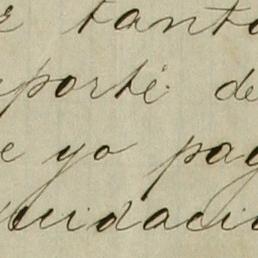 tanto
porté de
e yo pag
uidació